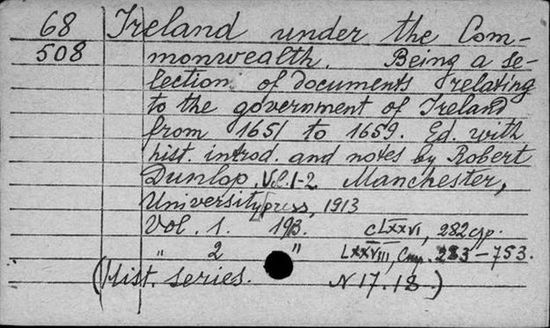 68 Ireland under the Com-
508 monwealth. Being a se-
lection of documents relating
to the government of Ireland
from 1651 to 1659. Ed. with
hist. introd. and notes by Robert
Dunlop. Vol. 1-2 Manchester,
University press, 1913
Vol. 1. 1913. CLXXVI, 282 стр.
" 2 " LXXVIII, Стр. 283-753.
(Hist. series. N 17. 18.)